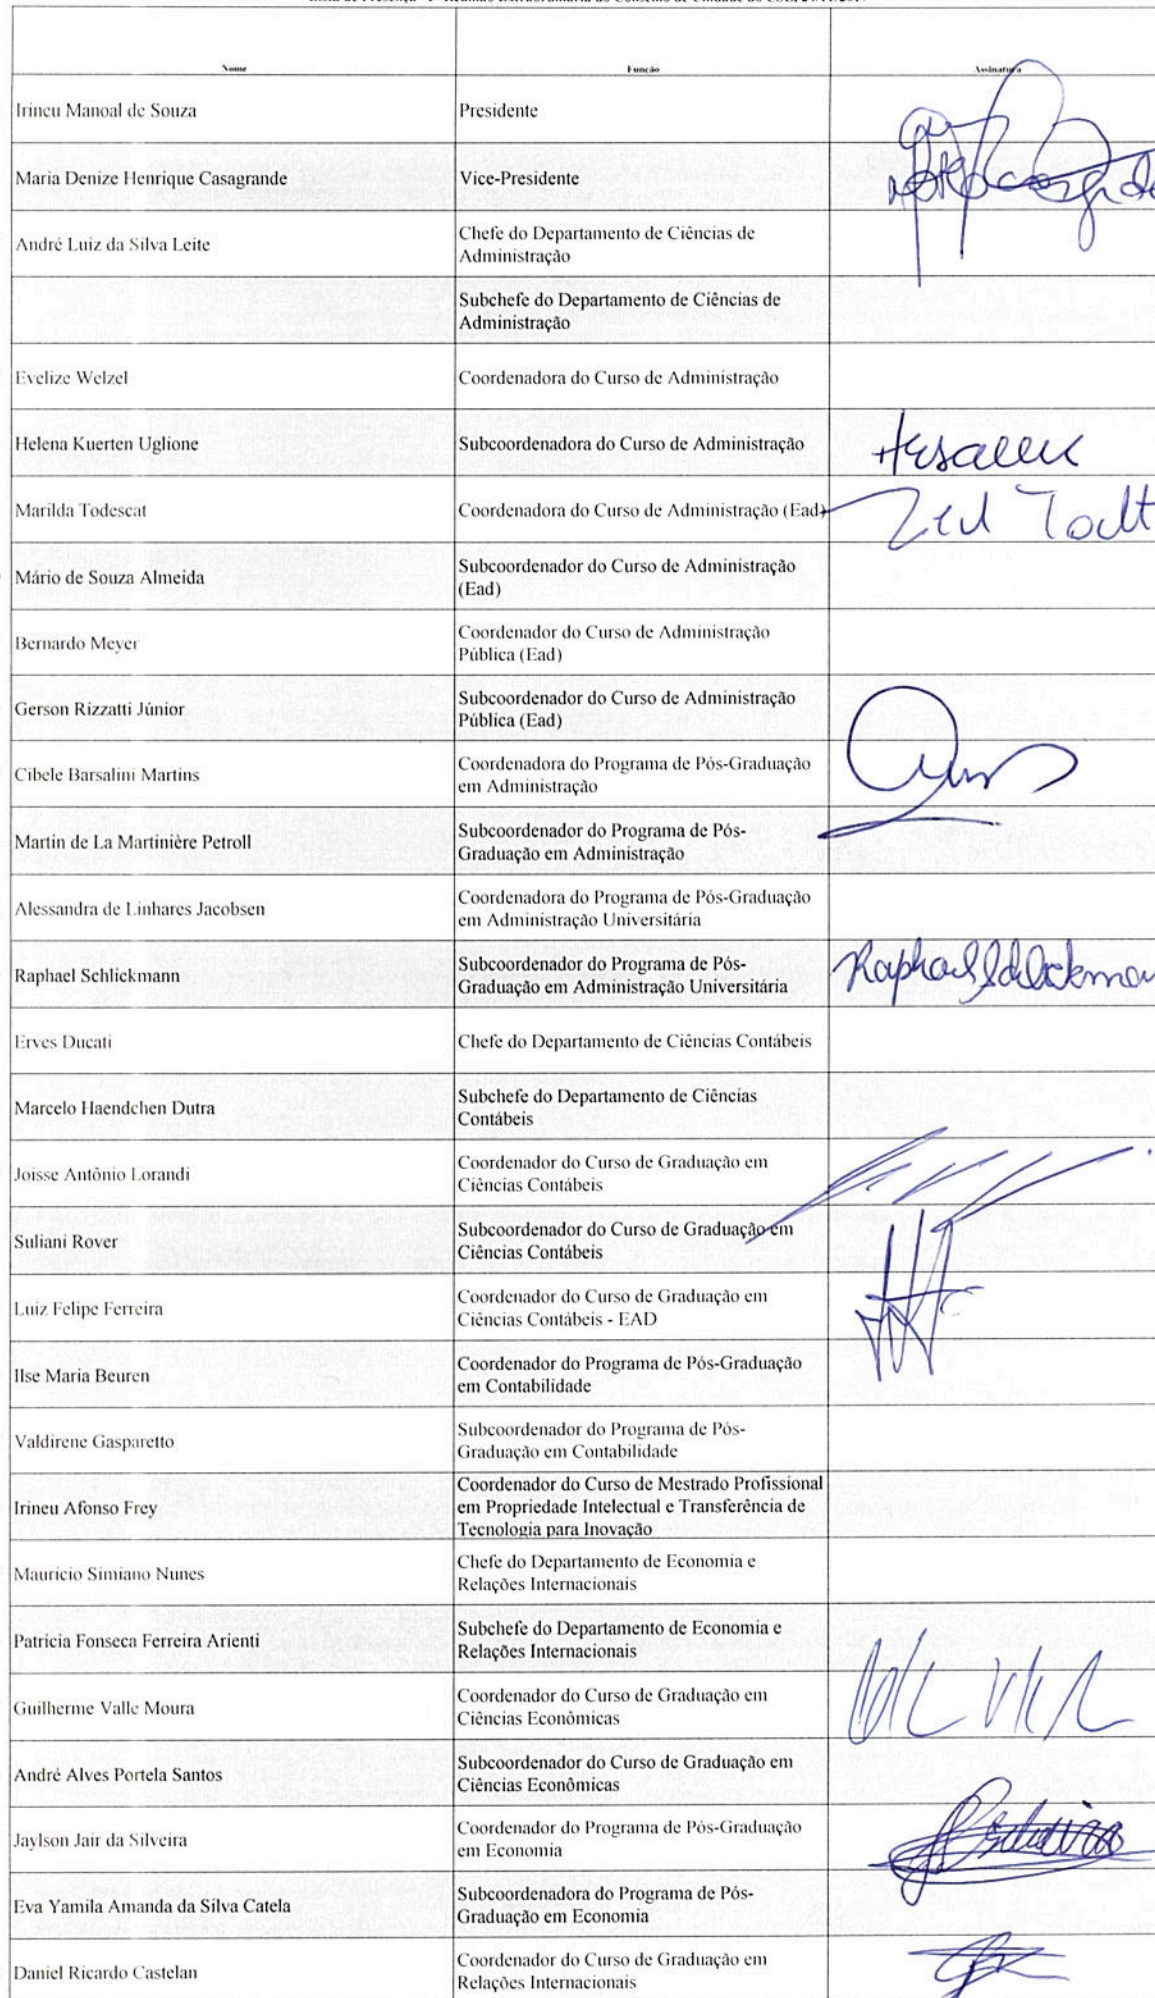 Nome Função Assinatura
Irineu Manoal de Souza Presidente
Maria Denize Henrique Casagrande Vice-Presidente
André Luiz da Silva Leite Chefe do Departamento de Ciências de
Administração
Subchefe do Departamento de Ciências de
Administração
Evelize Welzel Coordenadora do Curso de Administração
Helena Kuerten Uglione Subcoordenadora do Curso de Administração
Marilda Todescat Coordenadora do Curso de Administração (Ead)
Mário de Souza Almeida Subcoordenador do Curso de Administração
(Ead)
Bernardo Meyer Coordenador do Curso de Administração
Pública (Ead)
Gerson Rizzatti Júnior Subcoordenador do Curso de Administração
Pública (Ead)
Cibele Barsalini Martins Coordenadora do Programa de Pós-Graduação
em Administração
Martin de La Martinière Petroll Subcoordenador do Programa de Pós-
Graduação em Administração
Alessandra de Linhares Jacobsen Coordenadora do Programa de Pós-Graduação
em Administração Universitária
Raphael Schlickmann Subcoordenador do Programa de Pós-
Graduação em Administração Universitária
Erves Ducati Chefe do Departamento de Ciências Contábeis
Marcelo Haendchen Dutra Subchefe do Departamento de Ciências
Contábeis
Joisse Antônio Lorandi Coordenador do Curso de Graduação em
Ciências Contábeis
Suliani Rover Subcoordenador do Curso de Graduação em
Ciências Contábeis
Luiz Felipe Ferreira Coordenador do Curso de Graduação em
Ciências Contábeis - EAD
Ilse Maria Beuren Coordenador do Programa de Pós-Graduação
em Contabilidade
Valdirene Gasparetto Subcoordenador do Programa de Pós-
Graduação em Contabilidade
Irineu Afonso Frey Coordenador do Curso de Mestrado Profissional
em Propriedade Intelectual e Transferência de
Tecnologia para Inovação
Mauricio Simiano Nunes Chefe do Departamento de Economia e
Relações Internacionais
Patricia Fonseca Ferreira Arienti Subchefe do Departamento de Economia e
Relações Internacionais
Guilherme Valle Moura Coordenador do Curso de Graduação em
Ciências Econômicas
André Alves Portela Santos Subcoordenador do Curso de Graduação em
Ciências Econômicas
Jaylson Jair da Silveira Coordenador do Programa de Pós-Graduação
em Economia
Eva Yamila Amanda da Silva Catela Subcoordenadora do Programa de Pós-
Graduação em Economia
Daniel Ricardo Castelan Coordenador do Curso de Graduação em
Relações Internacionais